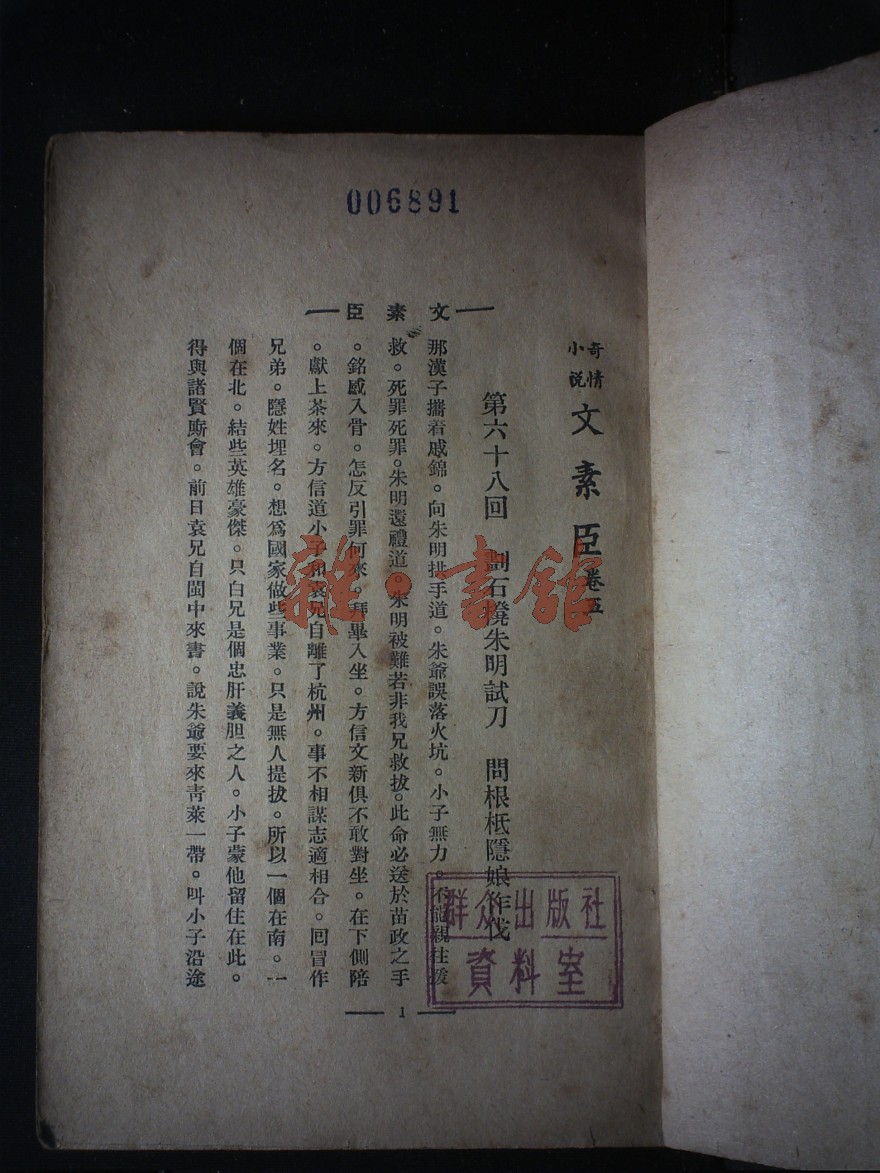 006891
奇情
小說
文素臣卷五
第六十八回　劃石凳朱明試刀　問根柢隱娘作伐
文素臣
那漢子攜着戚錦。向朱明拱手道。朱爺誤落火坑。小子無力。不能親往援
救。死罪死罪。朱明還禮道。朱明被難若非我兄救拔。此命必送於苗政之手
。銘感入骨。怎反引罪何來。拜畢入坐。方信文新俱不敢對坐。在下側陪
。獻上茶來。方信道小子和袁兄自離了杭州。事不相謀志適相合。回冒作
兄弟。隱姓埋名。想爲國家做些事業。只是無人提拔。所以一個在南。一
個在北。結些英雄豪傑。只白兄是個忠肝義胆之人。小子蒙他留住在此。
得與諸賢廝會。前日袁兄自閩中來書。說朱爺要來靑萊一帶。叫小子沿途
1
群众出版社
資料室
雜·書館